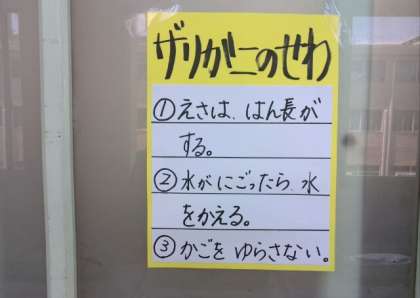 ザリガニのせわ
①えさは、はん長が
する。
②水がにごったら、水
をかえる。
③かごをゆらさない。